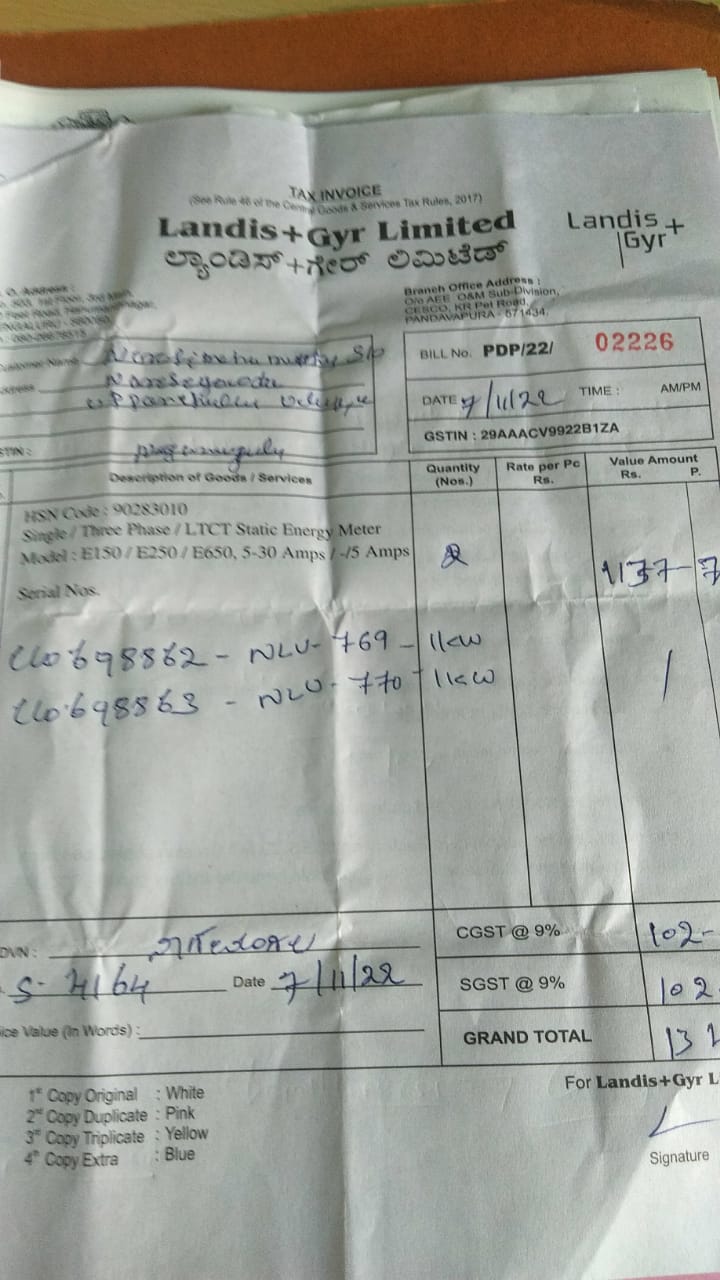 TAX INVOICE
(See Rule 46 of the Central Goods & Services Tax Rules, 2017)
Landis+Gyr Limited
ಲ್ಯಾಂಡಿಸ್+ಗೇರ್ ಲಿಮಿಟೆಡ್
Landis+
Gyr
Address :
Branch Office Address :
O/o AEE O&M Sub-Division,
CESCO, KR Pet Road,
PANDAVAPURA - 571434.
Customer Name S/o
Address
BILL No. PDP/22/ 02226
DATE 7/11/22 TIME : AM/PM
GSTIN : 29AAACV9922B1ZA
Description of Goods / Services
Quantity (Nos.)
Rate per Pc Rs.
Value Amount Rs. P.
HSN Code : 90283010
Single / Three Phase / LTCT Static Energy Meter
Model : E150 / E250 / E650, 5-30 Amps / -/5 Amps 2 1137-7
Serial Nos.
698862 - NLU- 769 - 1KW
698863 - NLU- 770 - 1KW
DVN :
CGST @ 9% 102-
S- 4164 Date 7/11/22
SGST @ 9% 102
ice Value (In Words) :
GRAND TOTAL 13
1st Copy Original : White
2nd Copy Duplicate : Pink
3rd Copy Triplicate : Yellow
4th Copy Extra : Blue
For Landis+Gyr L
Signature